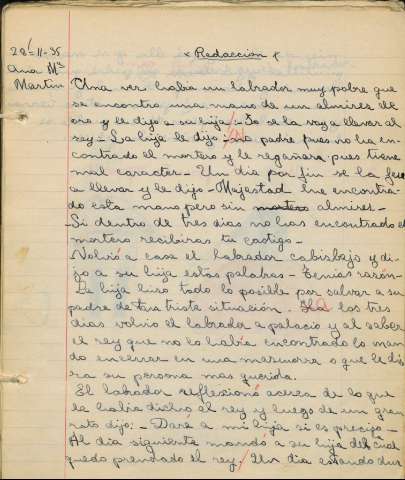 28-11-35
x Redaccion x
Ana Mª
Martin
Una vez habia un labrador muy pobre que
se encontro una mano de un almirez de
oro y le dijo a su hija - Se la voy a llevar al
rey - La hija le dijo: no padre pues no ha en-
contrado el mortero y le regañara pues tiene
mal caracter - Un dia por fin se la fue
a llevar y le dijo - Majestad he encontra-
do esta mano pero sin mortero almirez -
Si dentro de tres dias no has encontrado el
mortero recibiras tu castigo -
Volvió a casa el labrador cabizbajo y di-
jo a su hija estas palabras - Tenias razón -
La hija hizo todo lo posible por salvar a su
padre de tan trista situación. A los tres
dias volvio el labrador a palacio y al saber
el rey que no lo habia encontrado lo man
do encerrar en una mazmorra o que le die
ra su persona mas querida.
El labrador reflexionó acerca de lo que
le habia dicho el rey y luego de un gran
rato dijo: - Daré a mi hija si es preciso -
Al dia siguiente mandó a su hija del cual
quedo prendado el rey. Un dia estando dur